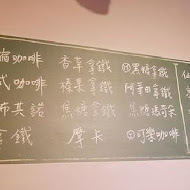 咖啡 香草拿鐵 黑糖拿鐵
式咖啡 榛果拿鐵
布其諾 焦糖拿鐵 焦糖瑪奇朵
拿鐵 摩卡 可樂咖啡